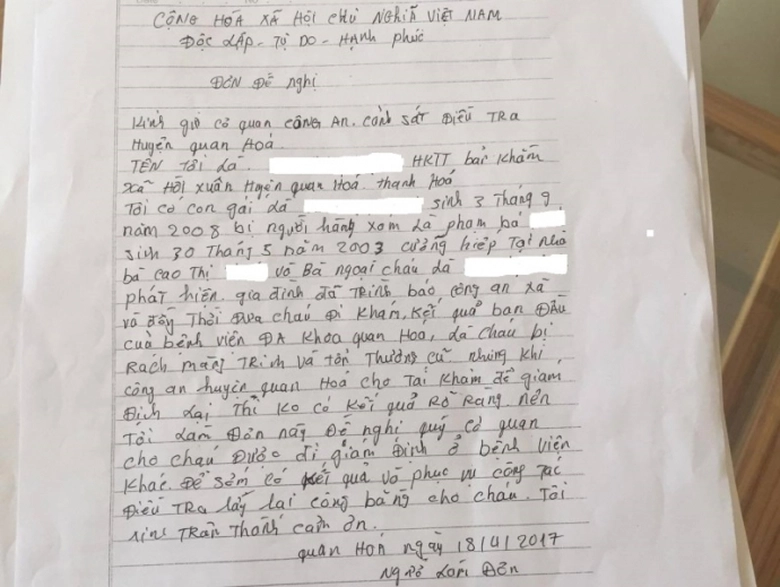 CỘNG HÒA XÃ HỘI CHỦ NGHĨA VIỆT NAM
ĐỘC LẬP - TỰ DO - HẠNH PHÚC
ĐƠN ĐỀ NGHỊ
Kính gửi cơ quan CÔNG AN. CẢNH SÁT ĐIỀU TRA
Huyện quan Hoá.
TÊN Tôi là. HKTT bản Khằm
xã Hồi xuân Huyện quan Hoá. Thanh Hoá
Tôi có con gái là sinh 3 Tháng 9
năm 2008 bị người hàng xóm là phạm bá
sinh 30 Tháng 5 năm 2003 cưỡng hiếp Tại nhà
bà Cao Thị và Bà ngoại cháu là
phát hiện. gia đình đã Trình báo công an xã
và đồng Thời Đưa cháu Đi Khám, Kết quả ban Đầu
của bệnh viện ĐA Khoa quan Hoa, là cháu bị
Rách màng TRinh và tổn Thương cũ. nhưng khi
công an huyện quan Hoá cho Tái Khám để giám
Định Lại Thì Ko có Kết quả Rõ Ràng nên
Tôi Làm Đơn này Đề nghị quý cơ quan
cho cháu Được đi giám Định ở bệnh viện
Khác. Để sớm có kết quả và phục vụ công Tác
Điều TRa lấy lại công bằng cho cháu. Tôi
xin TRân Thành cảm ơn.
quan Hoá ngày 18/4/2017
Người Làm Đơn